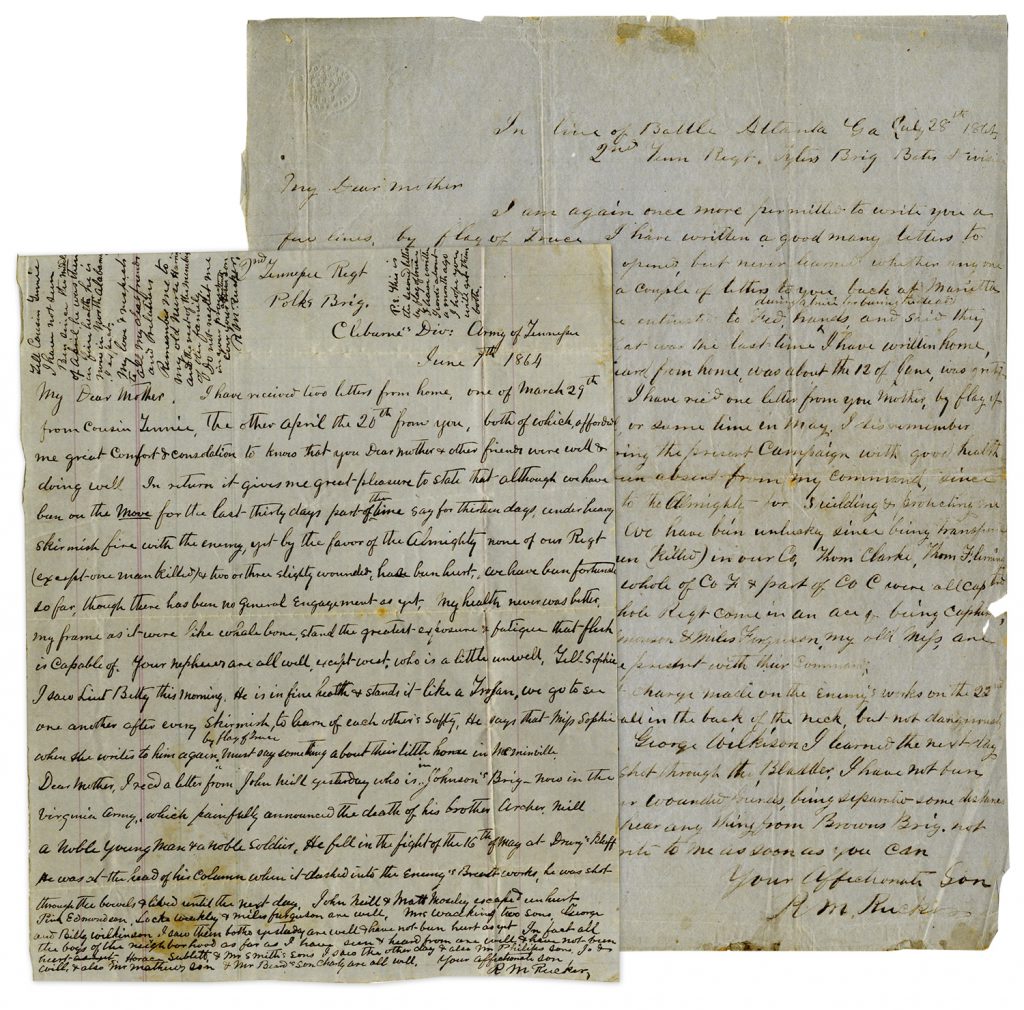 In line of Battle Atlanta Ga July 28th 1864
2nd Tenn Regt. Tylers Brig Bates Divisi
My Dear Mother
I am again once more permitted to write you a
few lines, by flag of Truce I have written a good many letters to
opened, but never learned whether any one
a couple of letters to you back at Marietta
during a truce for burying the dead
hands and said they
at was the last time I have written home,
eard from home, was about the 12 of June, was
I have rec'd one letter from you Mother, by flag of
or some time in May, I disremember
ring the present Campaign with good health
en absent from my command since
to the Almighty for Guilding & protecting me
We have bin unlucky since being transfer
en killed) in our Co, Thom Clarke, Thom Fleming
whole of Co F & part of Co C were all cap
hole Regt come in an ace of being Capture
& Miles Ferguson, my old Mess, are
present with their Command,
charge made on the Enemy's works on the 22nd
all in the back of the neck, but not dangerous
George Wilkison I learned the next day
shot through the Bladder, I have not bin
r wounded friends, being separated some distance
hear any thing from Browns Brig. not
rite to me as soon as you can
Your affectionate Son
R M Rucker
2nd Tennessee Regt
Polks Brig.
Cleburne's Div: Army of Tennessee
June 7th 1864
My Dear Mother, I have received two letters from home, one of March 29th
from Cousin Tennie, the other April the 20th from you, both of which, afforded
me great Comfort & consolation to know that you Dear mother & other friends were well &
doing well In return it gives me great pleasure to state that although we have
bun on the Move for the last thirty days part of the time say for thirteen days, under heavy
skirmish fire with the enemy, yet by the favor of the Almighty none of our Regt
(except one man killed) & two or three slightly wounded, have bun hurt, we have bun fortunate
so far, though there has bun no General Engagement as yet My health never was better,
my frame as it were like whale bone, stand the greatest exposure & fatigue that flesh
is Capable of. Your nephews are all well, except west, who is a little unwell, Tell Sophie
I saw Lieut Betty this morning. He is in fine health & stands it like a Trojan, we go to see
one another after every Skirmish, to learn of each other's safty, He says that Miss Sophie
when she writes to him again by flag of truce must say something about their little horse in McMinville
Dear Mother, I recd a letter from John Neill yesterday who is in Johnson's Brig now in the
Virginia Army, which painfully announced the death of his brother Archer Neill
a noble Young man & a noble Soldier, He fell in the fight of the 16th of May at Drury's Bluff
He was at the head of his Column when it dashed into the Enemy's Breast works, he was shot
through the bowels & lived until the next day. John Neill & Matt Mosley escaped unhurt
Pink Edmondson, Locke Weekly & Miles Ferguson are well, Mrs Watkins two sons, George
and Billy Wilkinson I saw them both yesterday are well & have not bun hurt as yet In fact all
the boys of the neighborhood as far as I have seen & heard from are well & have not bun
hurt as yet. Horace Sublett & Mr Smith's Sons I saw the other day & also Mr Philips sons,
well, & also Mr Mathews son & Mr Beard's son Charly are all well. Your affectionate son
R M Rucker
Tell Cousin Tennie
I have not seen
Ben since the mid
of April, he was then
in fine health, he is
now in North Alabama
My love & respects
to all my dear friends
and relatives
Remember me to
my old Nurse
and the rest of the members
of the family
Do not neglect me
in your prayers
R M Rucker
P.S. This is
the second letter
by flag of truce
I have written
a month ago
I hope you
will get them
both